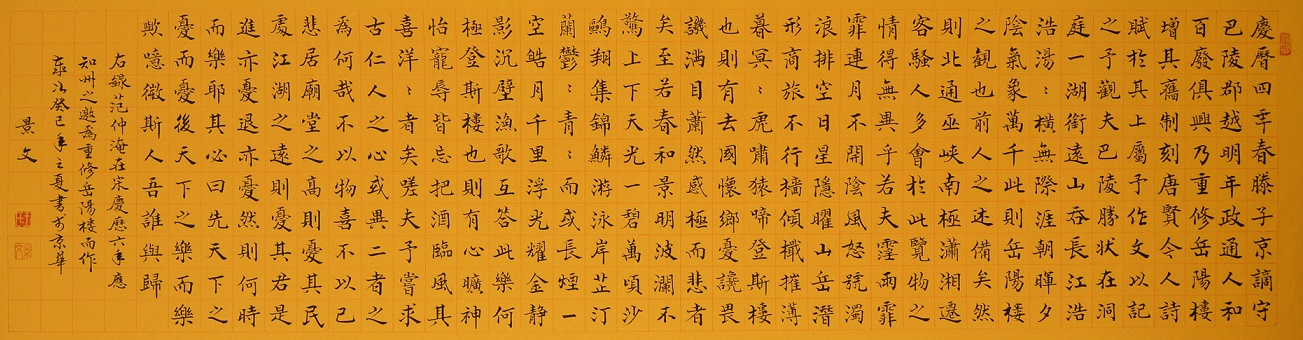 慶曆四年春滕子京謫守
巴陵郡越明年政通人和
百廢俱興乃重修岳陽樓
增其舊制刻唐賢令人詩
賦於其上屬予作文以記
之予觀夫巴陵勝狀在洞
庭一湖銜遠山吞長江浩
浩湯〻橫無際涯朝暉夕
陰氣象萬千此則岳陽樓
之觀也前人之述備矣然
則北通巫峽南極瀟湘遷
客騷人多會於此覽物之
情得無異乎若夫霪雨霏
霏連月不開陰風怒號濁
浪排空日星隱曜山岳潛
形商旅不行檣傾檝摧薄
暮冥〻虎嘯猿啼登斯樓
也則有去國懷鄉憂讒畏
譏滿目蕭然感極而悲者
矣至若春和景明波瀾不
驚上下天光一碧萬頃沙
鷗翔集錦鱗游泳岸芷汀
蘭鬱〻青〻而或長煙一
空皓月千里浮光耀金静
影沉璧漁歌互答此樂何
極登斯樓也則有心曠神
怡寵辱皆忘把酒臨風其
喜洋〻者矣嗟夫予嘗求
古仁人之心或異二者之
為何哉不以物喜不以己
悲居廟堂之高則憂其民
處江湖之遠則憂其君是
進亦憂退亦憂然則何時
而樂耶其必曰先天下之
憂而憂後天下之樂而樂
歟噫微斯人吾誰與歸
右錄范仲淹在宋慶應六年應
知州之邀為重修岳陽楼而作
歲次癸巳年之夏書於京華
景文